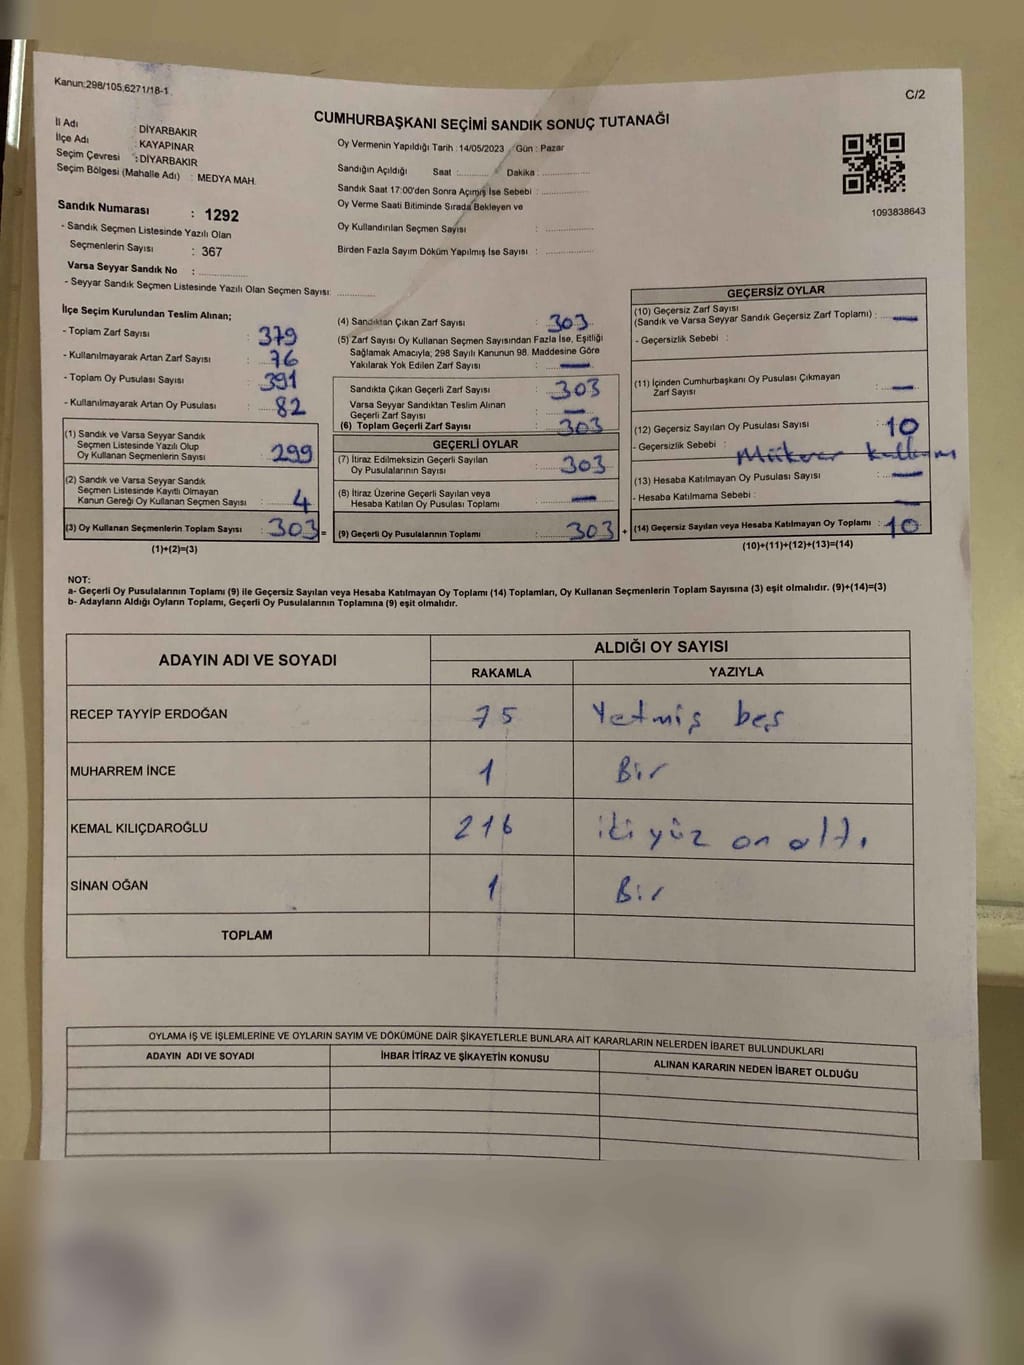 Kanun:298/105,6271/18-1
C/2
CUMHURBAŞKANI SEÇİMİ SANDIK SONUÇ TUTANAĞI
İl Adı : DİYARBAKIR
İlçe Adı : KAYAPINAR
Seçim Çevresi : DİYARBAKIR
Seçim Bölgesi (Mahalle Adı) : MEDYA MAH.
Oy Vermenin Yapıldığı Tarih : 14/05/2023 Gün : Pazar
Sandığın Açıldığı Saat :............ Dakika :..............
Sandık Saat 17:00'den Sonra Açımış İse Sebebi :..............
Oy Verme Saati Bitiminde Sırada Bekleyen ve
Oy Kullandırılan Seçmen Sayısı : ..............
Birden Fazla Sayım Döküm Yapılmış İse Sayısı : ..............
1093838643
Sandık Numarası : 1292
- Sandık Seçmen Listesinde Yazılı Olan
Seçmenlerin Sayısı : 367
Varsa Seyyar Sandık No : ..............
- Seyyar Sandık Seçmen Listesinde Yazılı Olan Seçmen Sayısı: ............
İlçe Seçim Kurulundan Teslim Alınan;
- Toplam Zarf Sayısı : 379
- Kullanılmayarak Artan Zarf Sayısı : 76
- Toplam Oy Pusulası Sayısı : 391
- Kullanılmayarak Artan Oy Pusulası : 82
(1) Sandık ve Varsa Seyyar Sandık
Seçmen Listesinde Yazılı Olup
Oy Kullanan Seçmenlerin Sayısı : 299
(2) Sandık ve Varsa Seyyar Sandık
Seçmen Listesinde Kayıtlı Olmayan
Kanun Gereği Oy Kullanan Seçmen Sayısı : 4
(3) Oy Kullanan Seçmenlerin Toplam Sayısı : 303 =
(1)+(2)=(3)
(4) Sandıktan Çıkan Zarf Sayısı : 303
(5) Zarf Sayısı Oy Kullanan Seçmen Sayısından Fazla İse, Eşitliği
Sağlamak Amacıyla; 298 Sayılı Kanunun 98. Maddesine Göre
Yakılarak Yok Edilen Zarf Sayısı : —
Sandıkta Çıkan Geçerli Zarf Sayısı : 303
Varsa Seyyar Sandıktan Teslim Alınan
Geçerli Zarf Sayısı : —
(6) Toplam Geçerli Zarf Sayısı : 303
GEÇERLİ OYLAR
(7) İtiraz Edilmeksizin Geçerli Sayılan
Oy Pusulalarının Sayısı : 303
(8) İtiraz Üzerine Geçerli Sayılan veya
Hesaba Katılan Oy Pusulası Toplamı : —
(9) Geçerli Oy Pusulalarının Toplamı : 303 +
GEÇERSİZ OYLAR
(10) Geçersiz Zarf Sayısı
(Sandık ve Varsa Seyyar Sandık Geçersiz Zarf Toplamı) : —
- Geçersizlik Sebebi :
(11) İçinden Cumhurbaşkanı Oy Pusulası Çıkmayan
Zarf Sayısı : —
(12) Geçersiz Sayılan Oy Pusulası Sayısı : 10
- Geçersizlik Sebebi : Mükerrer kullanım
(13) Hesaba Katılmayan Oy Pusulası Sayısı : —
- Hesaba Katılmama Sebebi : —
(14) Geçersiz Sayılan veya Hesaba Katılmayan Oy Toplamı : 10
(10)+(11)+(12)+(13)=(14)
NOT:
a- Geçerli Oy Pusulalarının Toplamı (9) ile Geçersiz Sayılan veya Hesaba Katılmayan Oy Toplamı (14) Toplamları, Oy Kullanan Seçmenlerin Toplam Sayısına (3) eşit olmalıdır. (9)+(14)=(3)
b- Adayların Aldığı Oyların Toplamı, Geçerli Oy Pusulalarının Toplamına (9) eşit olmalıdır.
ADAYIN ADI VE SOYADI
ALDIĞI OY SAYISI
RAKAMLA YAZIYLA
RECEP TAYYİP ERDOĞAN 75 Yetmiş beş
MUHARREM İNCE 1 Bir
KEMAL KILIÇDAROĞLU 216 iki yüz on altı
SİNAN OĞAN 1 Bir
TOPLAM
OYLAMA İŞ VE İŞLEMLERİNE VE OYLARIN SAYIM VE DÖKÜMÜNE DAİR ŞİKAYETLERLE BUNLARA AİT KARARLARIN NELERDEN İBARET BULUNDUKLARI
ADAYIN ADI VE SOYADI İHBAR İTİRAZ VE ŞİKAYETİN KONUSU ALINAN KARARIN NEDEN İBARET OLDUĞU